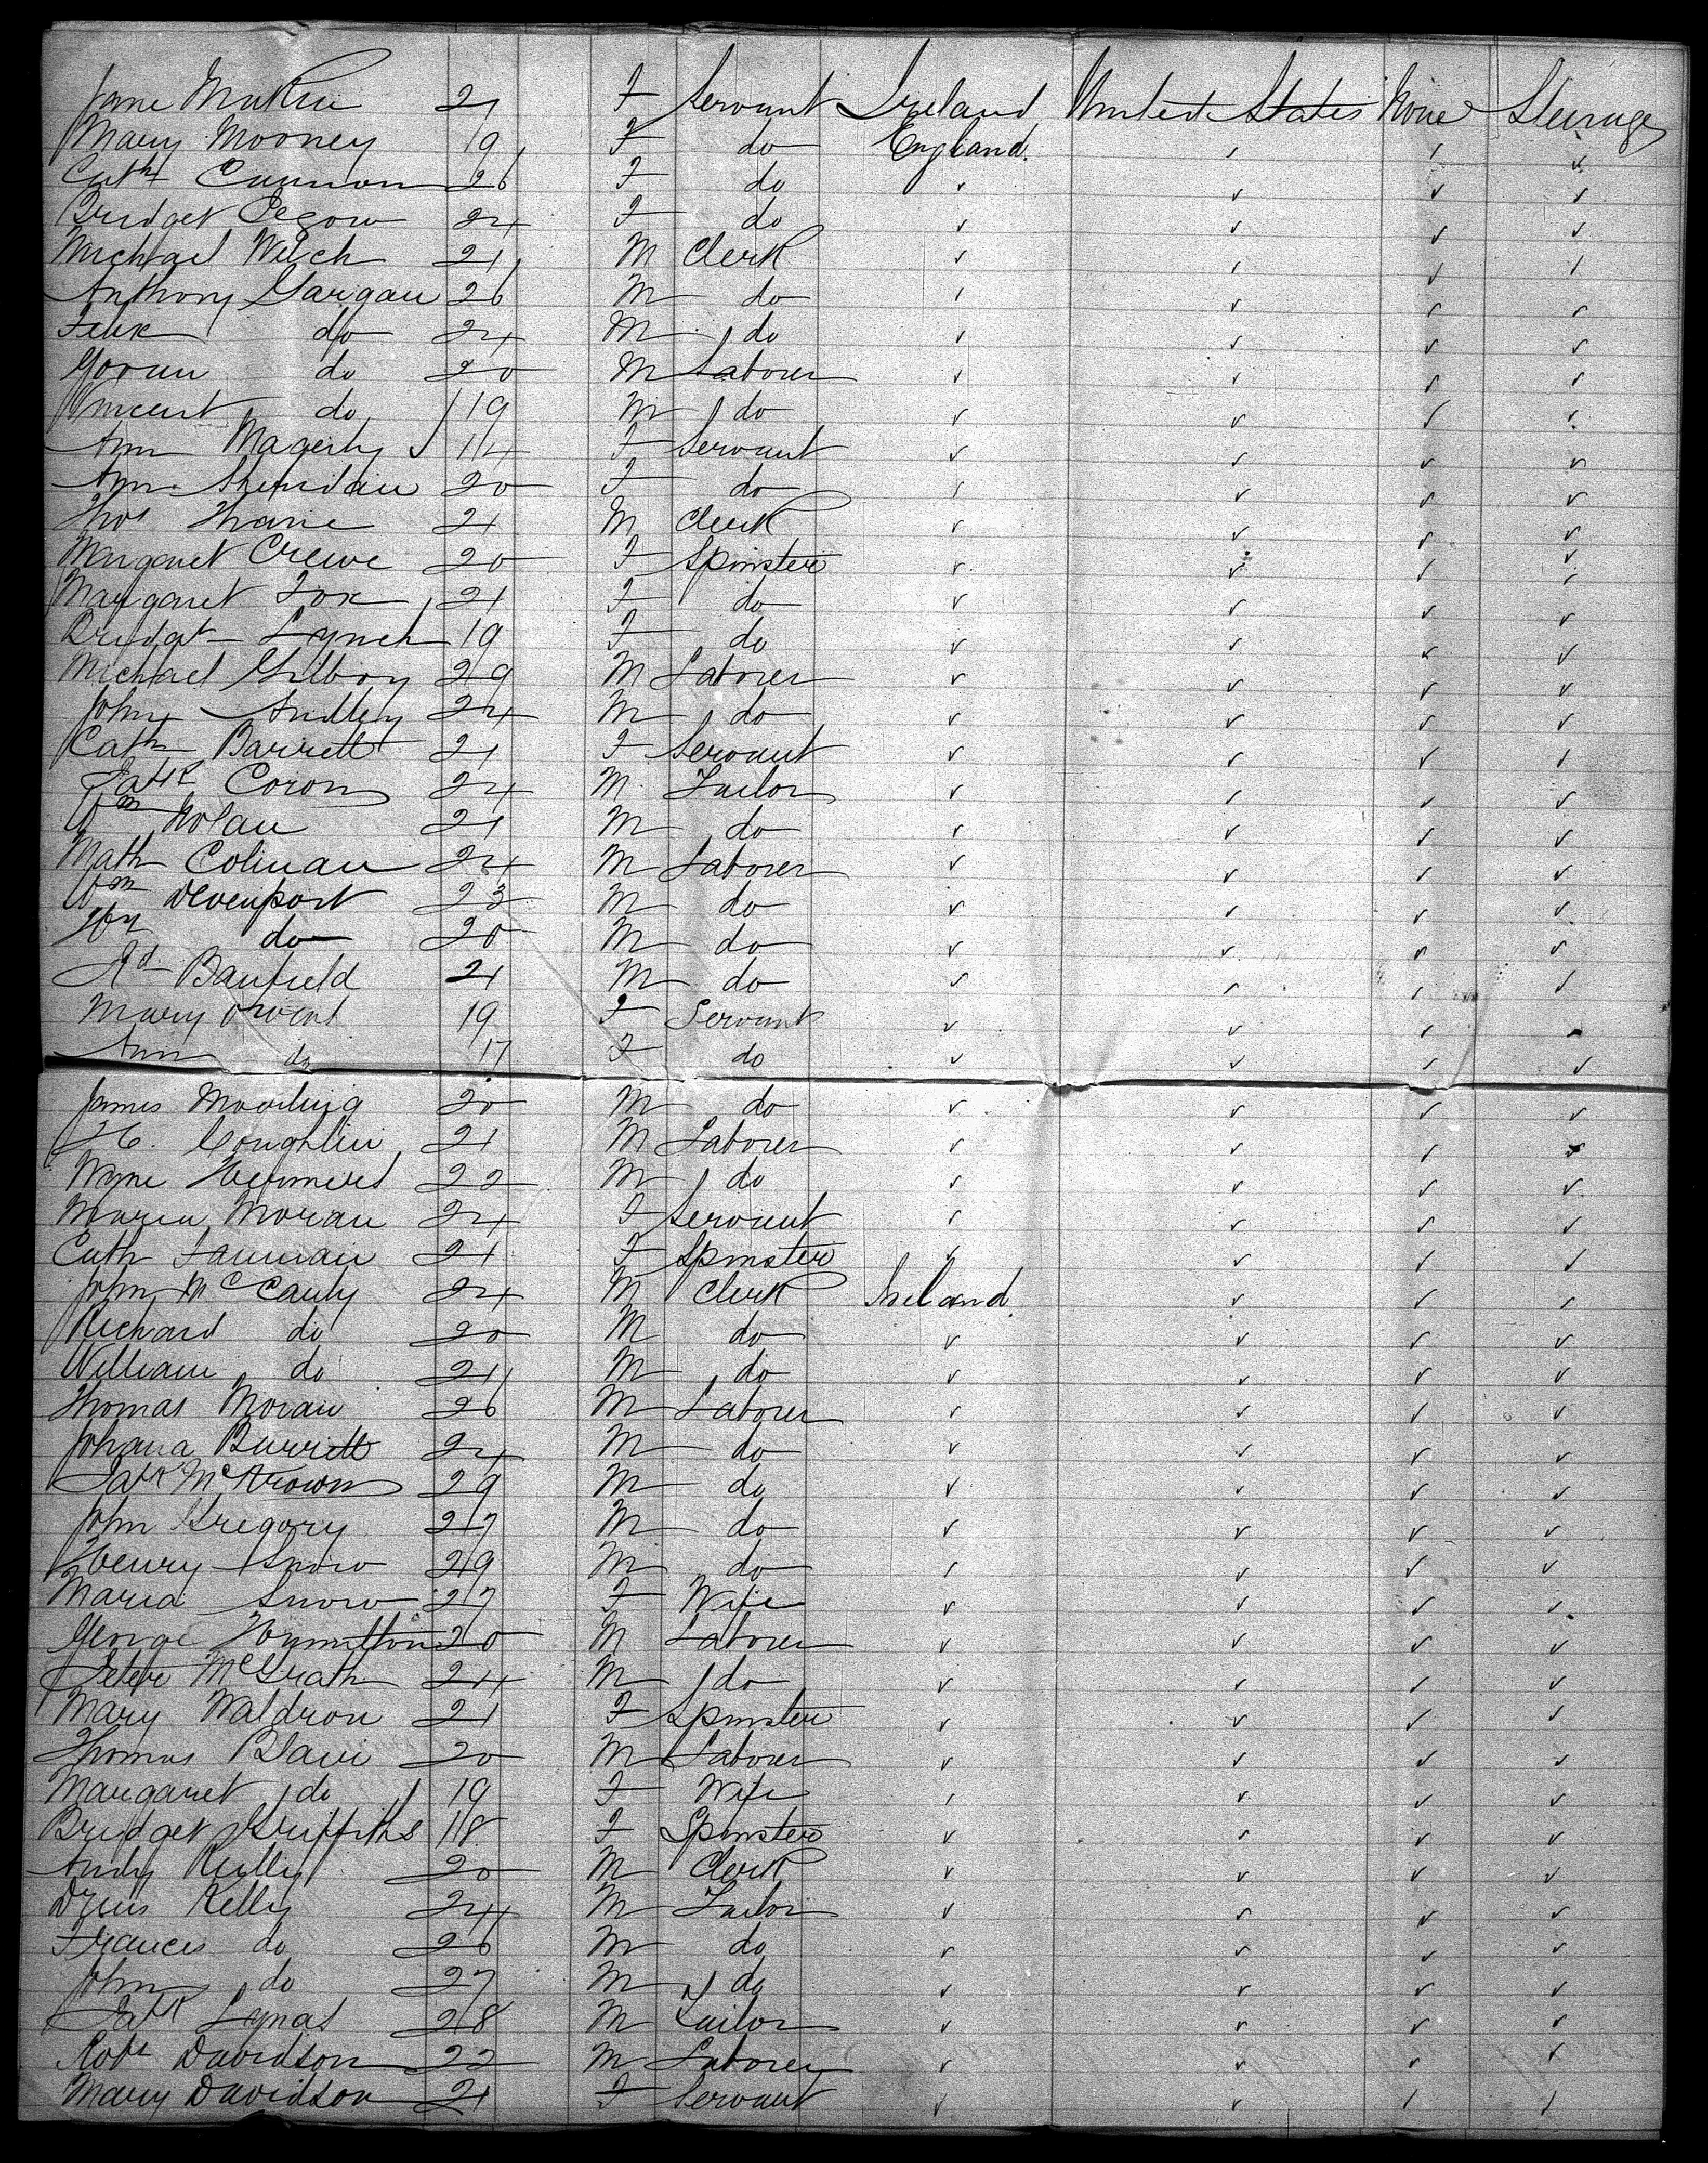 Jane 21 F Servant Ireland United States None Steerage
Mary Mooney 19 F do England ✓ ✓ ✓
Cath Cannon 26 F do ✓ ✓ ✓ ✓
Bridget 24 F do ✓ ✓ ✓ ✓
Michael Welch 21 M Clerk ✓ ✓ ✓ ✓
Anthony Gargan 26 M do ✓ ✓ ✓ ✓
Felix do 24 M do ✓ ✓ ✓ ✓
do 20 M Laborer ✓ ✓ ✓ ✓
Vincent do 19 M do ✓ ✓ ✓ ✓
Ann Magerty 14 F Servant ✓ ✓ ✓ ✓
Ann Sheridan 20 F do ✓ ✓ ✓ ✓
Thos 21 M Clerk ✓ ✓ ✓ ✓
Margaret Crewe 20 F Spinster ✓ ✓ ✓ ✓
Margaret Fox 21 F do ✓ ✓ ✓ ✓
Bridgt Lynch 19 F do ✓ ✓ ✓ ✓
Michael Gilboy 29 M Laborer ✓ ✓ ✓ ✓
John 24 M do ✓ ✓ ✓ ✓
Cath Barrett 21 F Servant ✓ ✓ ✓ ✓
Patk 24 M Tailor ✓ ✓ ✓ ✓
Wm Nolan 21 M do ✓ ✓ ✓ ✓
Math Colinan 24 M Laborer ✓ ✓ ✓ ✓
Wm Devenport 23 M do ✓ ✓ ✓ ✓
Hy do 20 M do ✓ ✓ ✓ ✓
Rd Banfield 21 M do ✓ ✓ ✓ ✓
Mary 19 F Servant ✓ ✓ ✓ ✓
Ann do 17 F do ✓ ✓ ✓ ✓
James 20 M do ✓ ✓ ✓ ✓
H. Coughlin 21 M Laborer ✓ ✓ ✓ ✓
22 M do ✓ ✓ ✓ ✓
Maria Moran 24 F Servant ✓ ✓ ✓ ✓
Cath 21 F Spinster ✓ ✓ ✓ ✓
John McCauly 24 M Clerk Ireland ✓ ✓ ✓
Richard do 20 M do ✓ ✓ ✓ ✓
William do 21 M do ✓ ✓ ✓ ✓
Thomas Moran 26 M Laborer ✓ ✓ ✓ ✓
Johana Burrett 24 M do ✓ ✓ ✓ ✓
Patk 29 M do ✓ ✓ ✓ ✓
John Gregory 27 M do ✓ ✓ ✓ ✓
Henry Snow 29 M do ✓ ✓ ✓ ✓
Maria Snow 27 F Wife ✓ ✓ ✓ ✓
George Hamilton 20 M Laborer ✓ ✓ ✓ ✓
Peter McGrath 24 M do ✓ ✓ ✓ ✓
Mary Waldron 21 F Spinster ✓ ✓ ✓ ✓
Thomas 20 M Laborer ✓ ✓ ✓ ✓
Margaret do 19 F Wife ✓ ✓ ✓ ✓
Bridget Griffiths 18 F Spinster ✓ ✓ ✓ ✓
Andy 20 M Clerk ✓ ✓ ✓ ✓
Kelly 24 M Tailor ✓ ✓ ✓ ✓
Frances do 26 M do ✓ ✓ ✓ ✓
John do 27 M do ✓ ✓ ✓ ✓
Patk Lynas 28 M Tailor ✓ ✓ ✓ ✓
Robt Davidson 22 M Laborer ✓ ✓ ✓ ✓
Mary Davidson 21 F Servant ✓ ✓ ✓ ✓